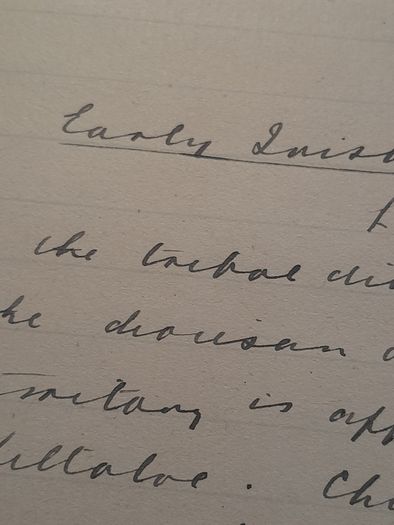 Early Irish
the tribal di
he diocesan
territory is app
illaloe. Ch